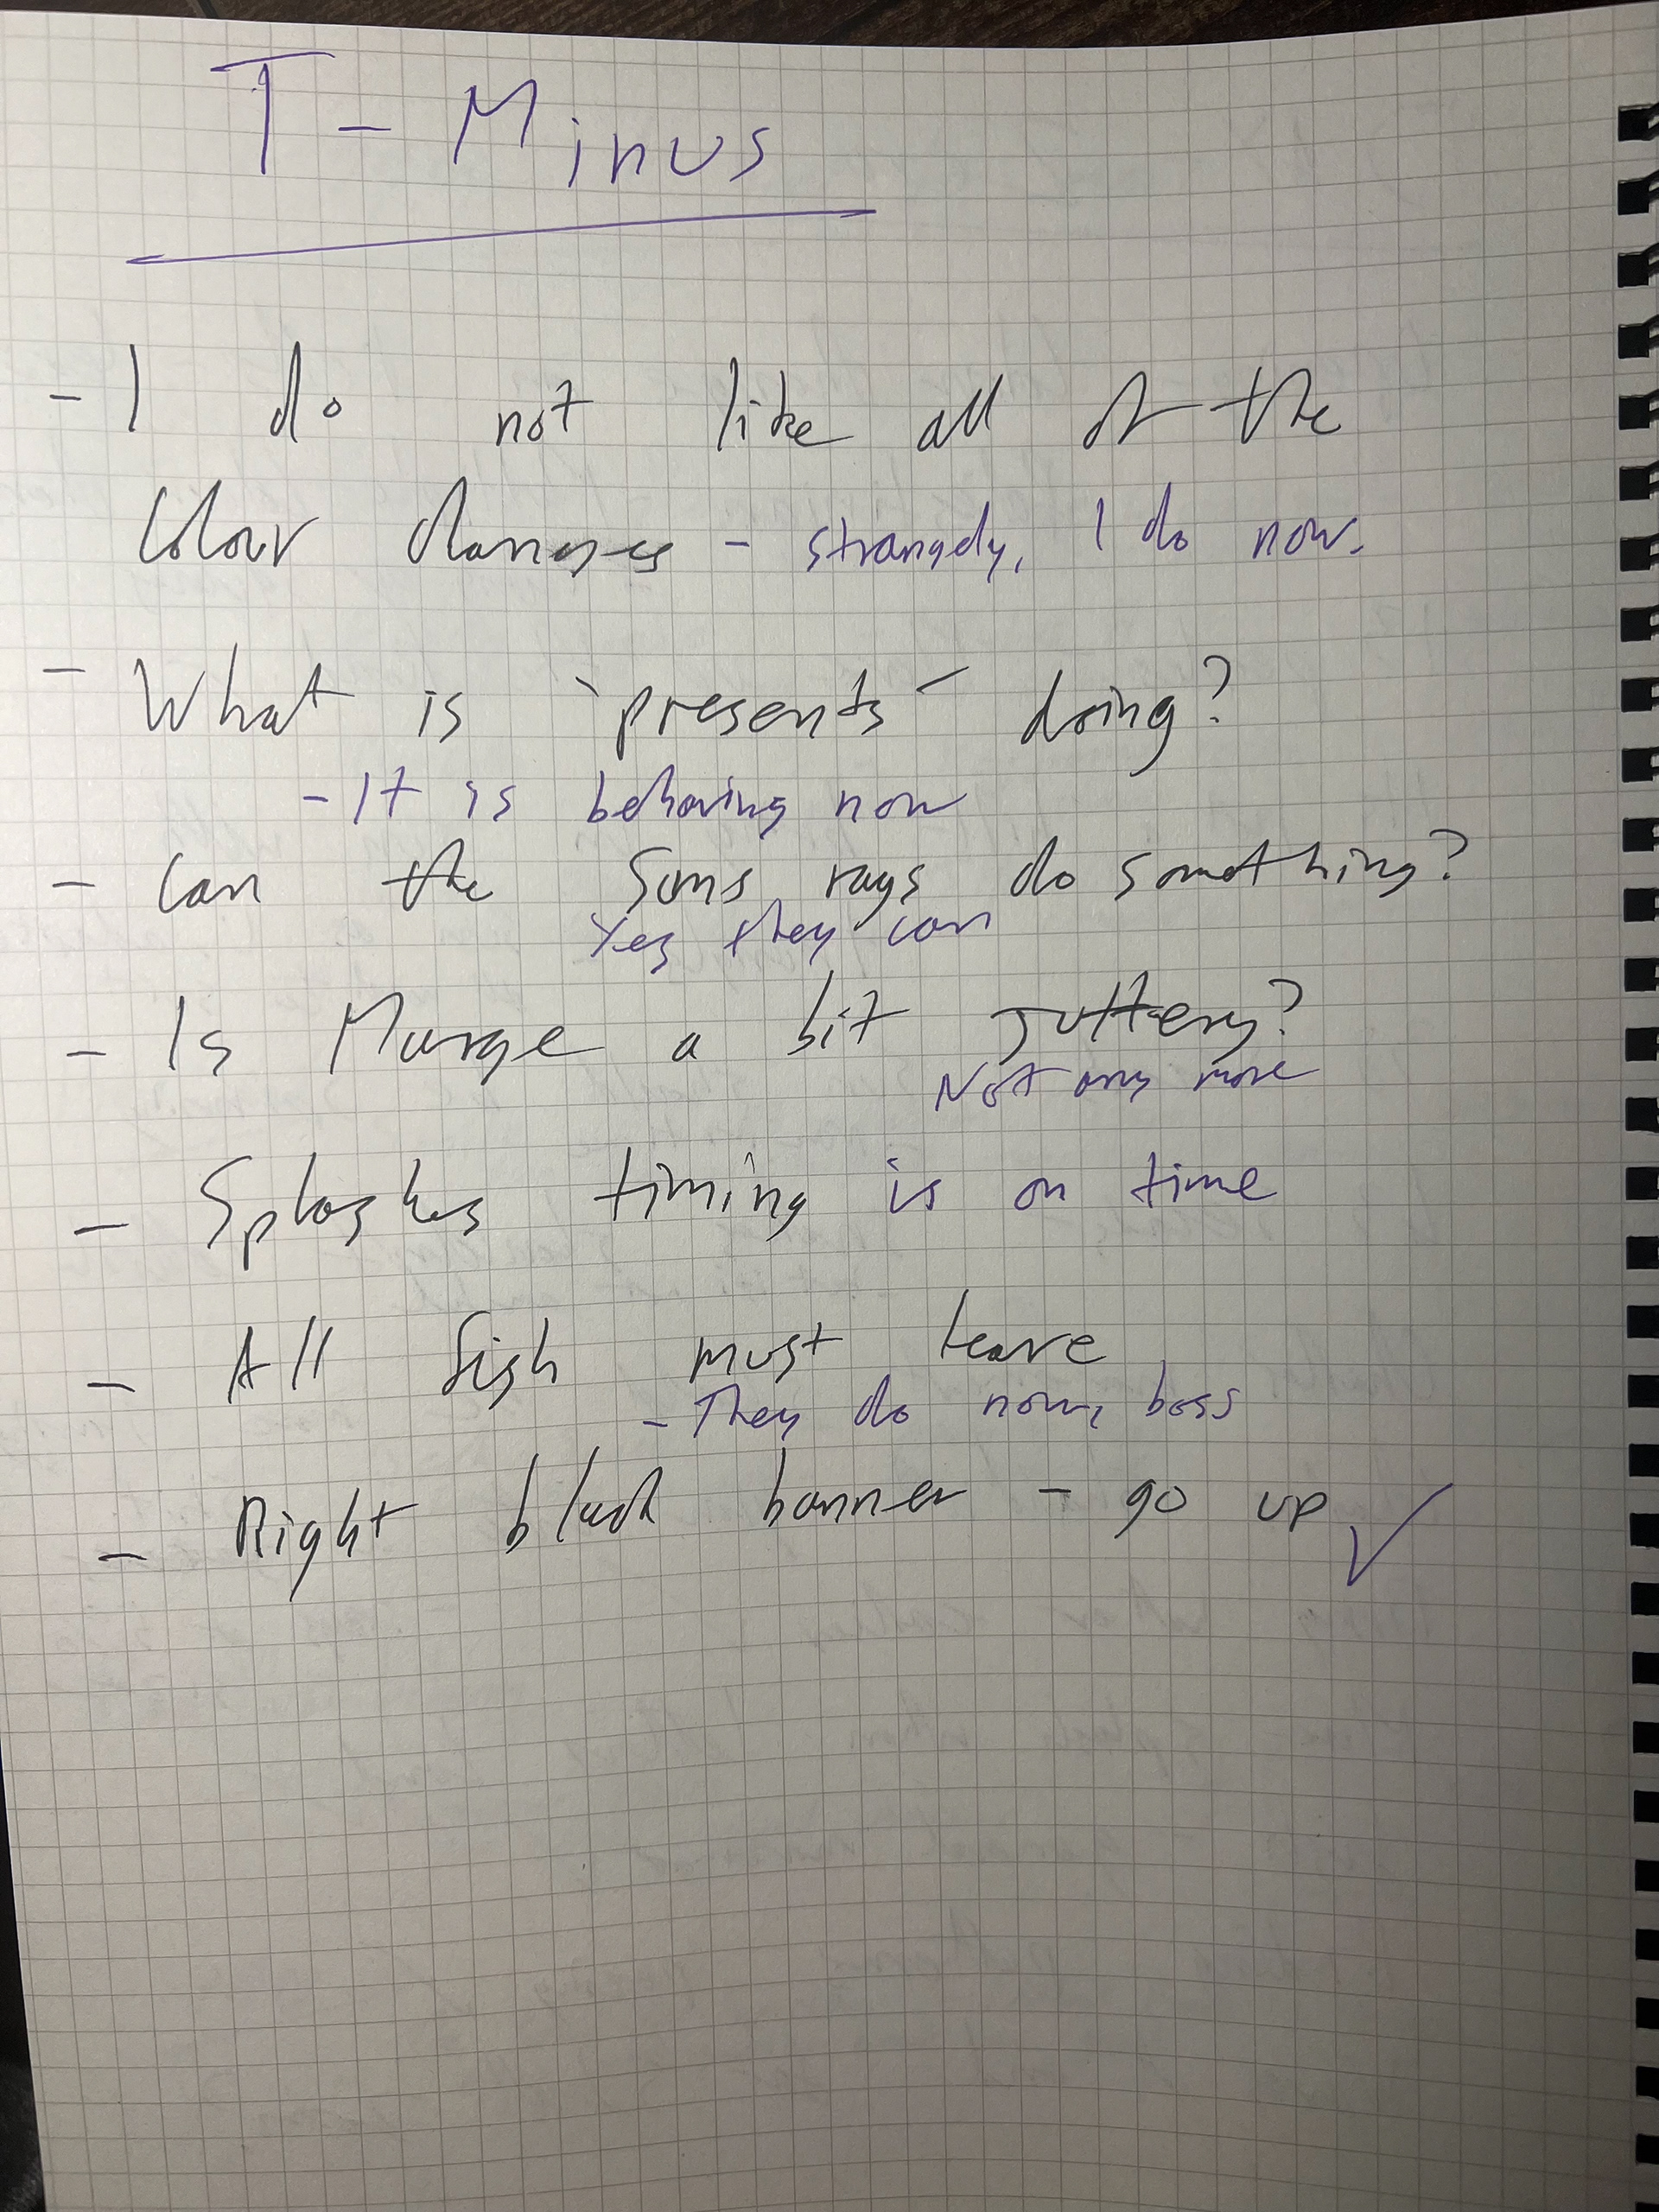 T-Minus
- I do not like all of the
colour changes - strangely, I do now.
- What is "presents" doing?
- It is behaving now
- can the Suns rays do something?
Yes they can
- Is Marge a bit juttery?
Not any more
- Splashes timing is on time
- All fish must leave
- They do now, boss
- Right black banner - go up ✓